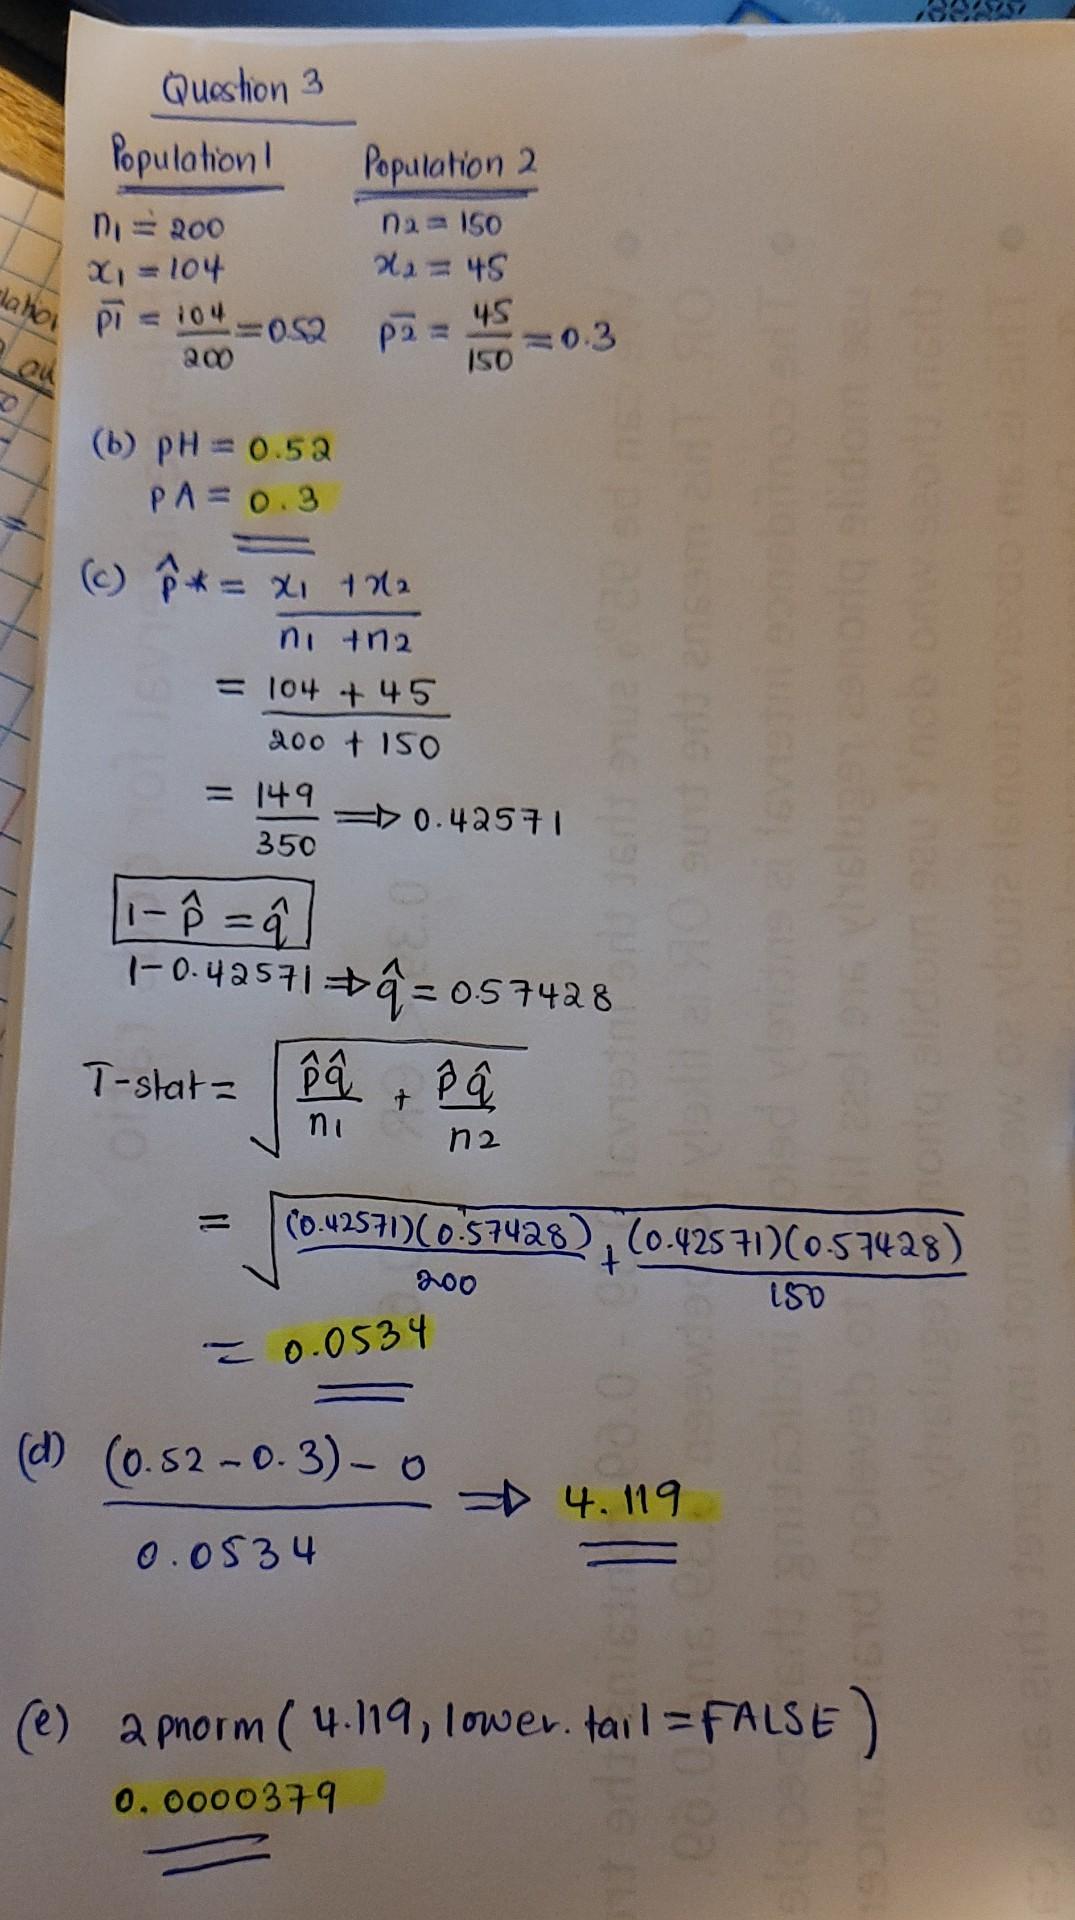 Question 3
Population 1 Population 2
n1 = 200 n2 = 150
x1 = 104 x2 = 45
p̄1 = 104/200 = 0.52 p̄2 = 45/150 = 0.3
(b) pH = 0.52
pA = 0.3
(c) p̂* = x1 + x2
n1 + n2
= 104 + 45
200 + 150
= 149/350 ⇒ 0.42571
1 - p̂ = q̂
1-0.42571 ⇒ q̂ = 0.57428
T-stat = √ p̂q̂/n1 + p̂q̂/n2
= √ (0.42571)(0.57428)/200 + (0.42571)(0.57428)/150
= 0.0534
(d) (0.52 - 0.3) - 0 ⇒ 4.119
0.0534
(e) 2pnorm(4.119, lower.tail=FALSE)
0.0000379